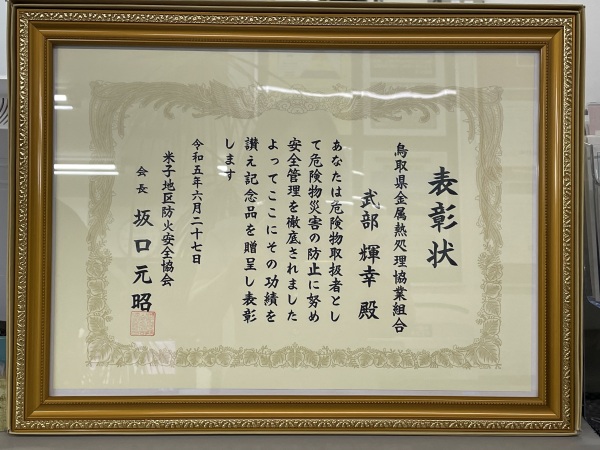 表彰状
鳥取県金属熱処理協業組合
武部 輝幸 殿
あなたは危険物取扱者とし
て危険物災害の防止に努め
安全管理を徹底されました
よってここにその功績を
讃え記念品を贈呈し表彰
します
令和五年六月二十七日
米子地区防火安全協会
会長 坂口元昭